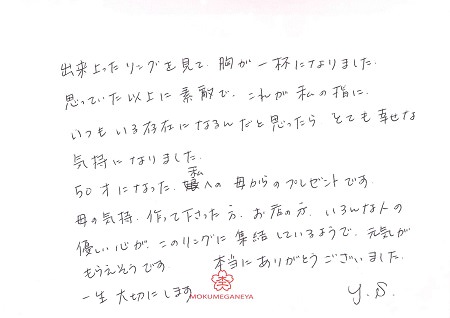 出来上ったリングを見て、胸が一杯になりました。
思っていた以上に素敵で、これが私の指に、
いつもいる存在になるんだと思ったら とても幸せな
気持になりました。
50才になった 私への 母からのプレゼントです。
母の気持、作って下さった方、お店の方、いろんな人の
優しい心が、このリングに集結しているようで、元気が
もらえそうです。 本当にありがとうございました。
一生 大切にします
MOKUMEGANEYA
Y.S.